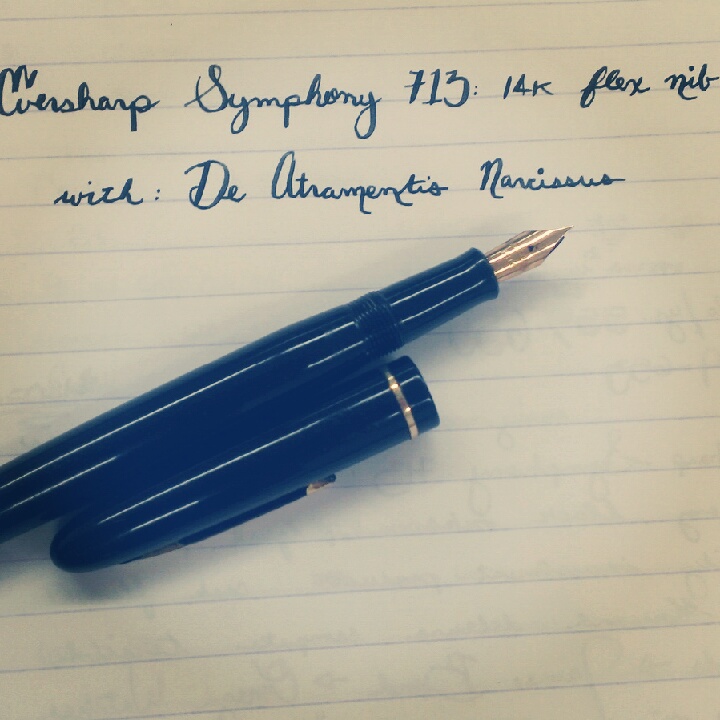 Eversharp Symphony 713: 14K flex nib
with: De Atramentis Narcissus